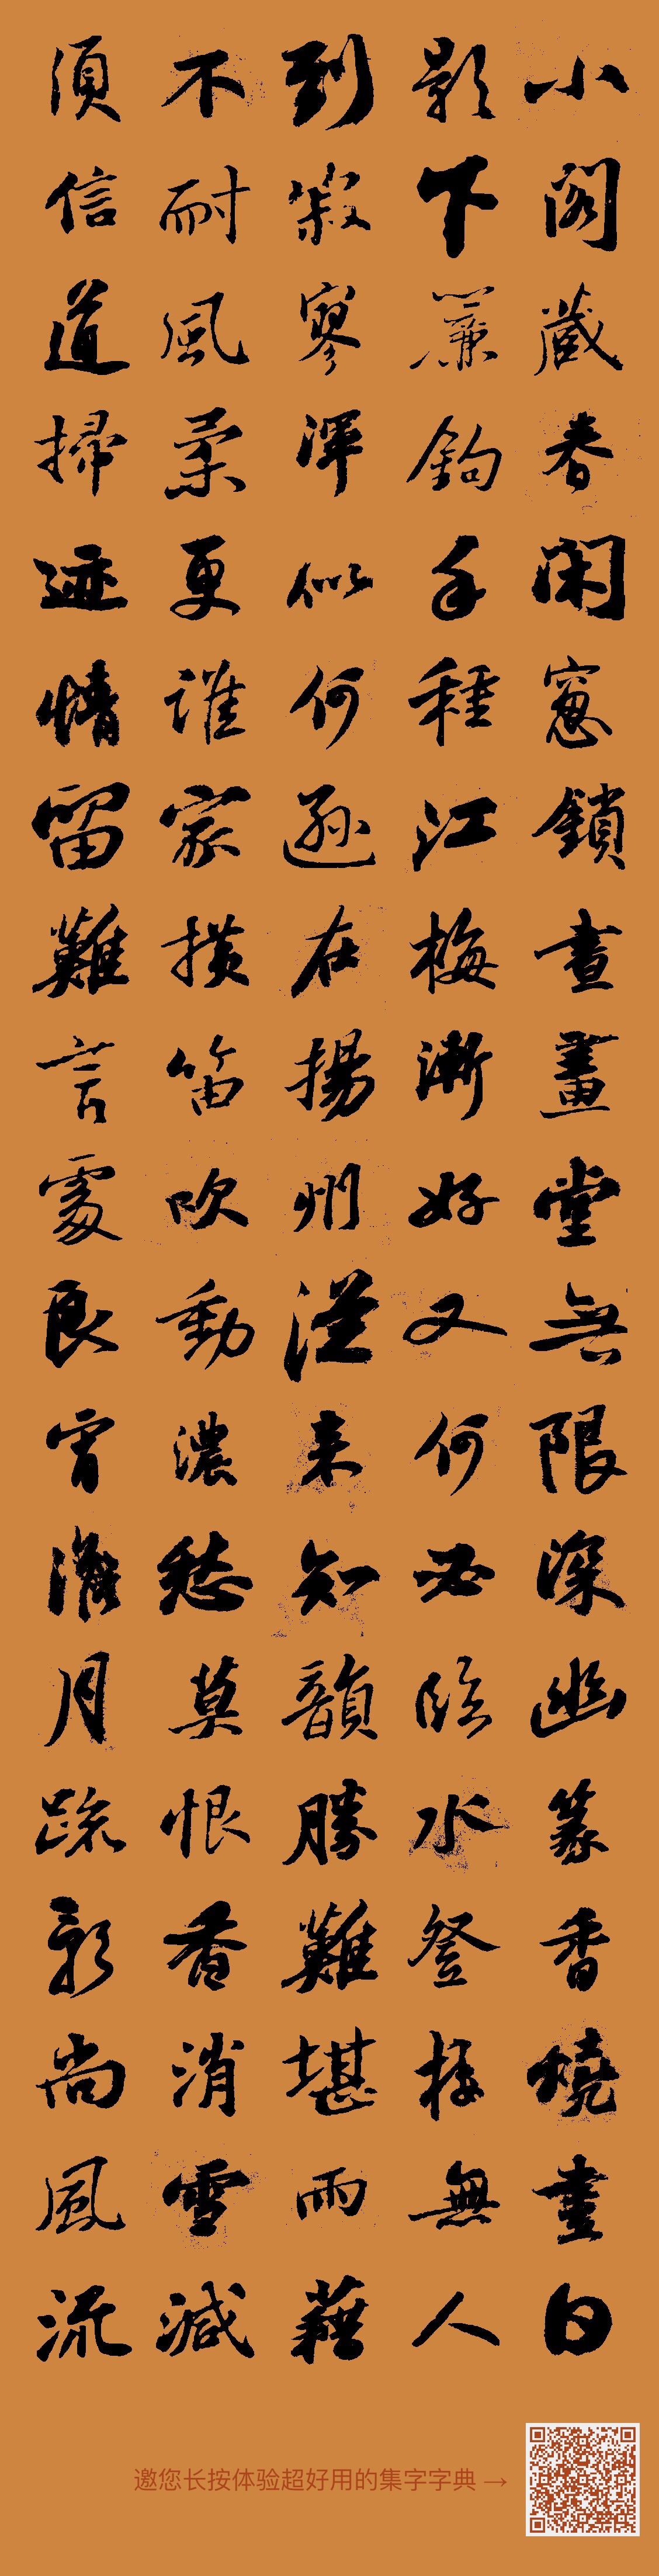 小閣藏春閑窻鎖晝畫堂無限深幽篆香燒盡日
影下簾鉤手種江梅漸好又何必臨水登樓無人
到寂寥渾似何遜在揚州從来知韻勝難堪雨藉
不耐風柔更誰家横笛吹動濃愁莫恨香消雪減
須信道掃迹情留難言處良宵澹月疏影尚風流
邀您长按体验超好用的集字字典→